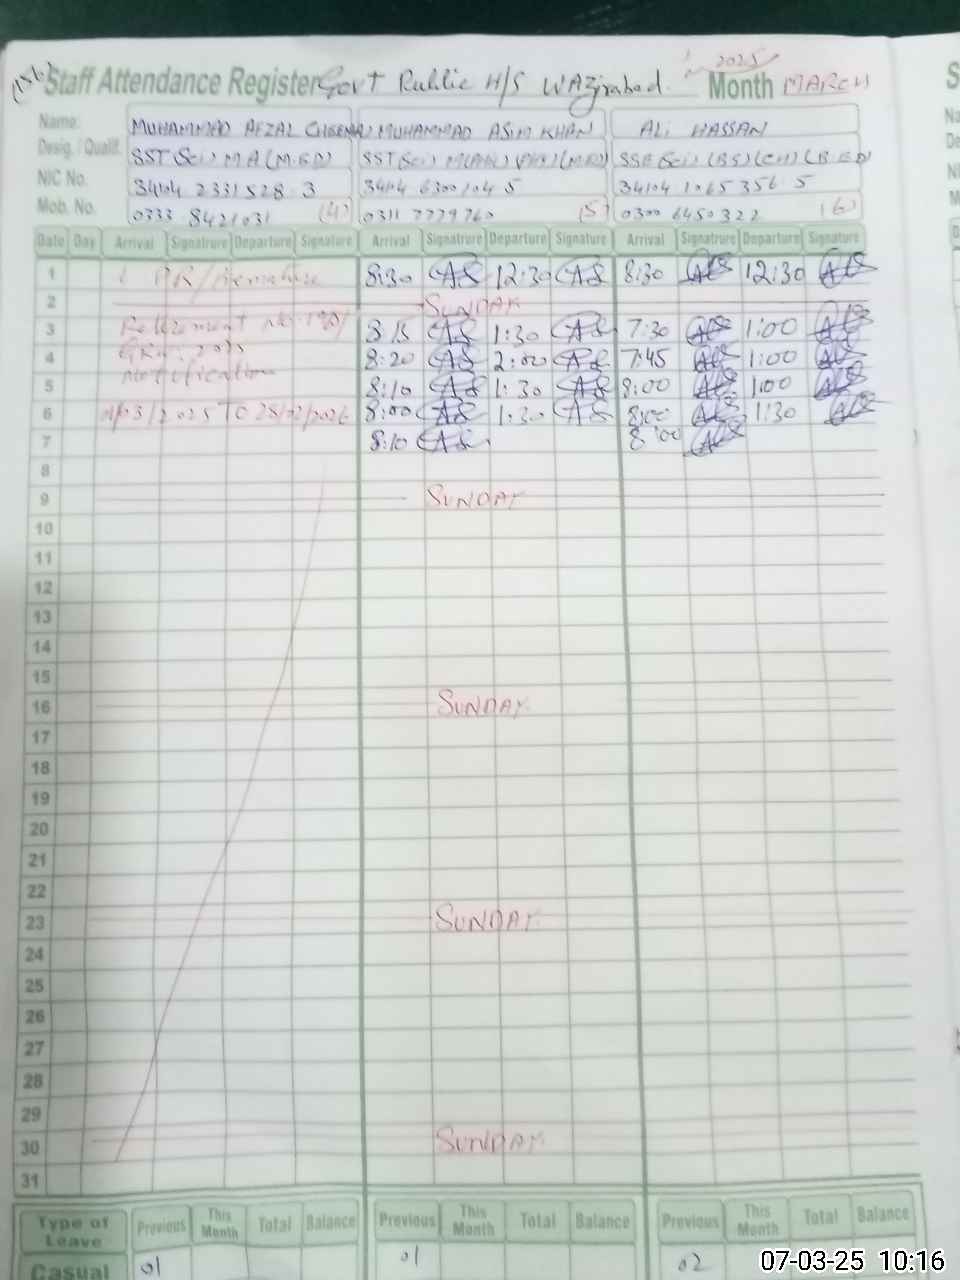 Staff Attendance Register Govt Public H/S Wazirabad. 2025
Month MARCH
Name: MUHAMMAD AFZAL CHEEMA MUHAMMAD ASIM KHAN ALI HASSAN
Desig. / Qualif. SST(Sci) M A (M.ED) SST(Sci) SSE(Sci) (BS) (CH) (B.ED)
NIC No. 34104 2331528 3 34104 6300104 5 34104 1065356 5
Mob. No. 0333 8421031 (4) 0311 7779760 (5) 0300 6450322 (6)
Date Day Arrival Signatrure Departure Signature Arrival Signatrure Departure Signature Arrival Signatrure Departure Signature
1 LPR/ 8:30 AS 12:30 AS 8:30 12:30
2 SUNDAY
3 Retirement 8:15 AS 1:30 AS 7:30 1:00
4 8:20 AS 2:00 AS 7:45 1:00
notification
5 8:10 AS 1:30 AS 8:00 1:00
6 /03/2025 TO 28/02/2026 8:00 AS 1:30 AS 8:00 1:30
7 8:10 AS 8:00
8
9 SUNDAY
10
11
12
13
14
15
16 SUNDAY
17
18
19
20
21
22
23 SUNDAY
24
25
26
27
28
29
30 SUNDAY
31
Type of Leave Previous This Month Total Balance Previous This Month Total Balance Previous This Month Total Balance
Casual 01 01 02
07-03-25 10:16